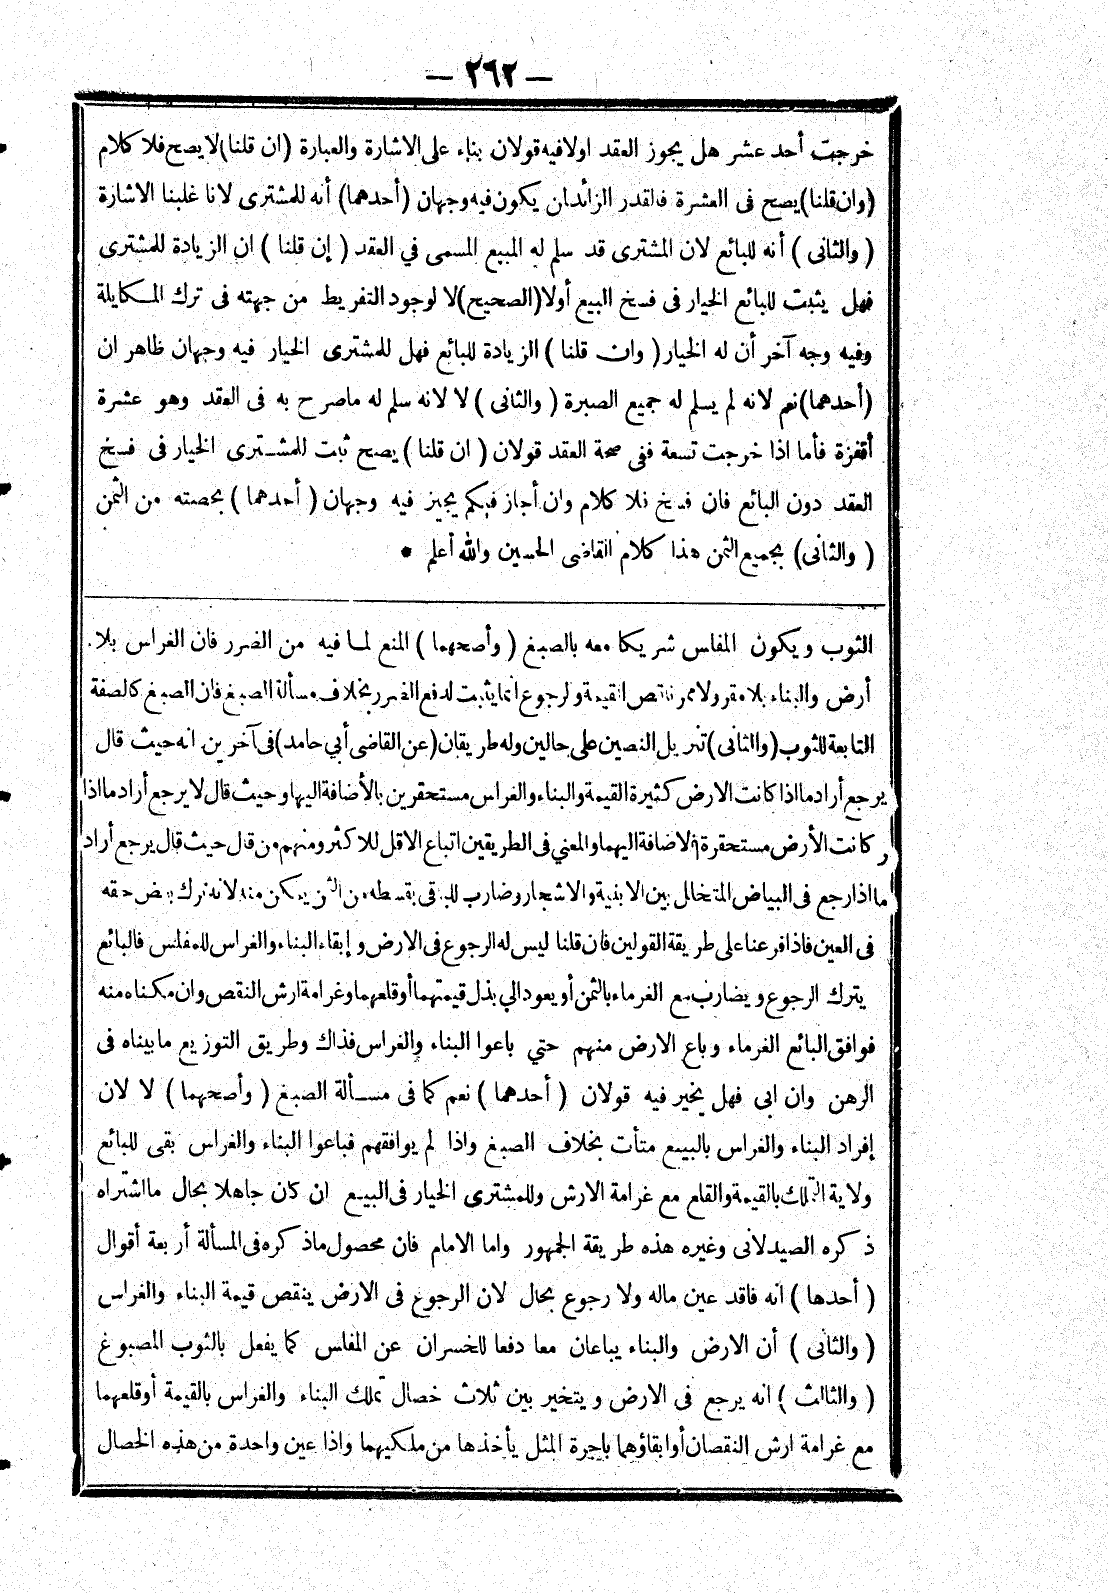 — ٢٦٢ —
خرجت أحد عشر هل يجوز العقد اولا فيه قولان بناء على الاشارة والعبارة (ان قلنا) لا يصح فلا كلام
(وان قلنا) يصح فى العشرة فالقدر الزائدان يكون فيه وجهان (أحدهما) أنه للمشترى لانا غلبنا الاشارة
( والثانى ) أنه للبائع لان المشترى قد سلم له المبيع المسمى في العقد ( إن قلنا ) ان الزيادة للمشترى
فهل يثبت للبائع الخيار فى فسخ البيع أولا (الصحيح) لا لوجود التفريط من جهته فى ترك المكايلة
وفيه وجه آخر أن له الخيار ( وان قلنا ) الزيادة للبائع فهل للمشترى الخيار فيه وجهان ظاهر ان
(أحدهما) نعم لانه لم يسلم له جميع الصبرة ( والثانى ) لا لانه سلم له ماصرح به فى العقد وهو عشرة
أقفزة فأما اذا خرجت تسعة ففى صحة العقد قولان ( ان قلنا ) يصح ثبت للمشترى الخيار فى فسخ
العقد دون البائع فان فسخ فلا كلام وان أجاز فبكم يجيز فيه وجهان ( أحدهما ) بحصته من الثمن
( والثانى) بجميع الثمن هذا كلام القاضى الحسين والله أعلم •
الثوب ويكون المفلس شريكا معه بالصبغ ( وأصحهما ) المنع لما فيه من الضرر فان الغراس بلا
أرض والبناء بلا مقر ولا ممر ناقص القيمة والرجوع انما يثبت لدفع الضرر بخلاف مسألة الصبغ فان الصبغ كالصفة
التابعة للثوب (والثانى) تنزيل النصين على حالين وله طريقان (عن القاضى أبي حامد) فى آخرين انه حيث قال
يرجع أراد ما اذا كانت الارض كثيرة القيمة والبناء والغراس مستحقرين بالأضافة اليها وحيث قال لا يرجع أراد ما اذا
كانت الأرض مستحقرة بالاضافة اليهما والمعني فى الطريقين اتباع الاقل للاكثر ومنهم من قال حيث قال يرجع أراد
ما اذا رجع فى البياض المتخلل بين الابنية والاشجار وضارب للباقى بقسطه من الثمن يمكن منه لانه ترك بعض حقه
فى العين فاذا فرعنا على طريقة القولين فان قلنا ليس له الرجوع فى الارض وإبقاء البناء والغراس للمفلس فالبائع
يترك الرجوع ويضارب مع الغرماء بالثمن أو يعود الي بذل قيمتهما أو قلعهما وغرامة ارش النقص وان مكناه منه
فوافق البائع الغرماء وباع الارض منهم حتي باعوا البناء والغراس فذاك وطريق التوزيع مابيناه فى
الرهن وان ابى فهل يخير فيه قولان ( أحدهما ) نعم كما فى مسألة الصبغ ( وأصحهما ) لا لان
إفراد البناء والغراس بالبيع متأت بخلاف الصبغ واذا لم يوافقهم فباعوا البناء والغراس بقى للبائع
ولاية التملك بالقيمة والقلع مع غرامة الارش وللمشترى الخيار فى البيع ان كان جاهلا بحال مااشتراه
ذكره الصيدلانى وغيره هذه طريقة الجمهور واما الامام فان محصول ماذكره فى المسألة أربعة أقوال
( أحدها ) انه فاقد عين ماله ولا رجوع بحال لان الرجوع فى الارض ينقص قيمة البناء والغراس
( والثانى ) أن الارض والبناء يباعان معا دفعا للخسران عن المفلس كما يفعل بالثوب المصبوغ
( والثالث ) انه يرجع فى الارض ويتخير بين ثلاث خصال تملك البناء والغراس بالقيمة أوقلعهما
مع غرامة ارش النقصان أو ابقاؤهما باجرة المثل يأخذها من ملكيهما واذا عين واحدة من هذه الخصال